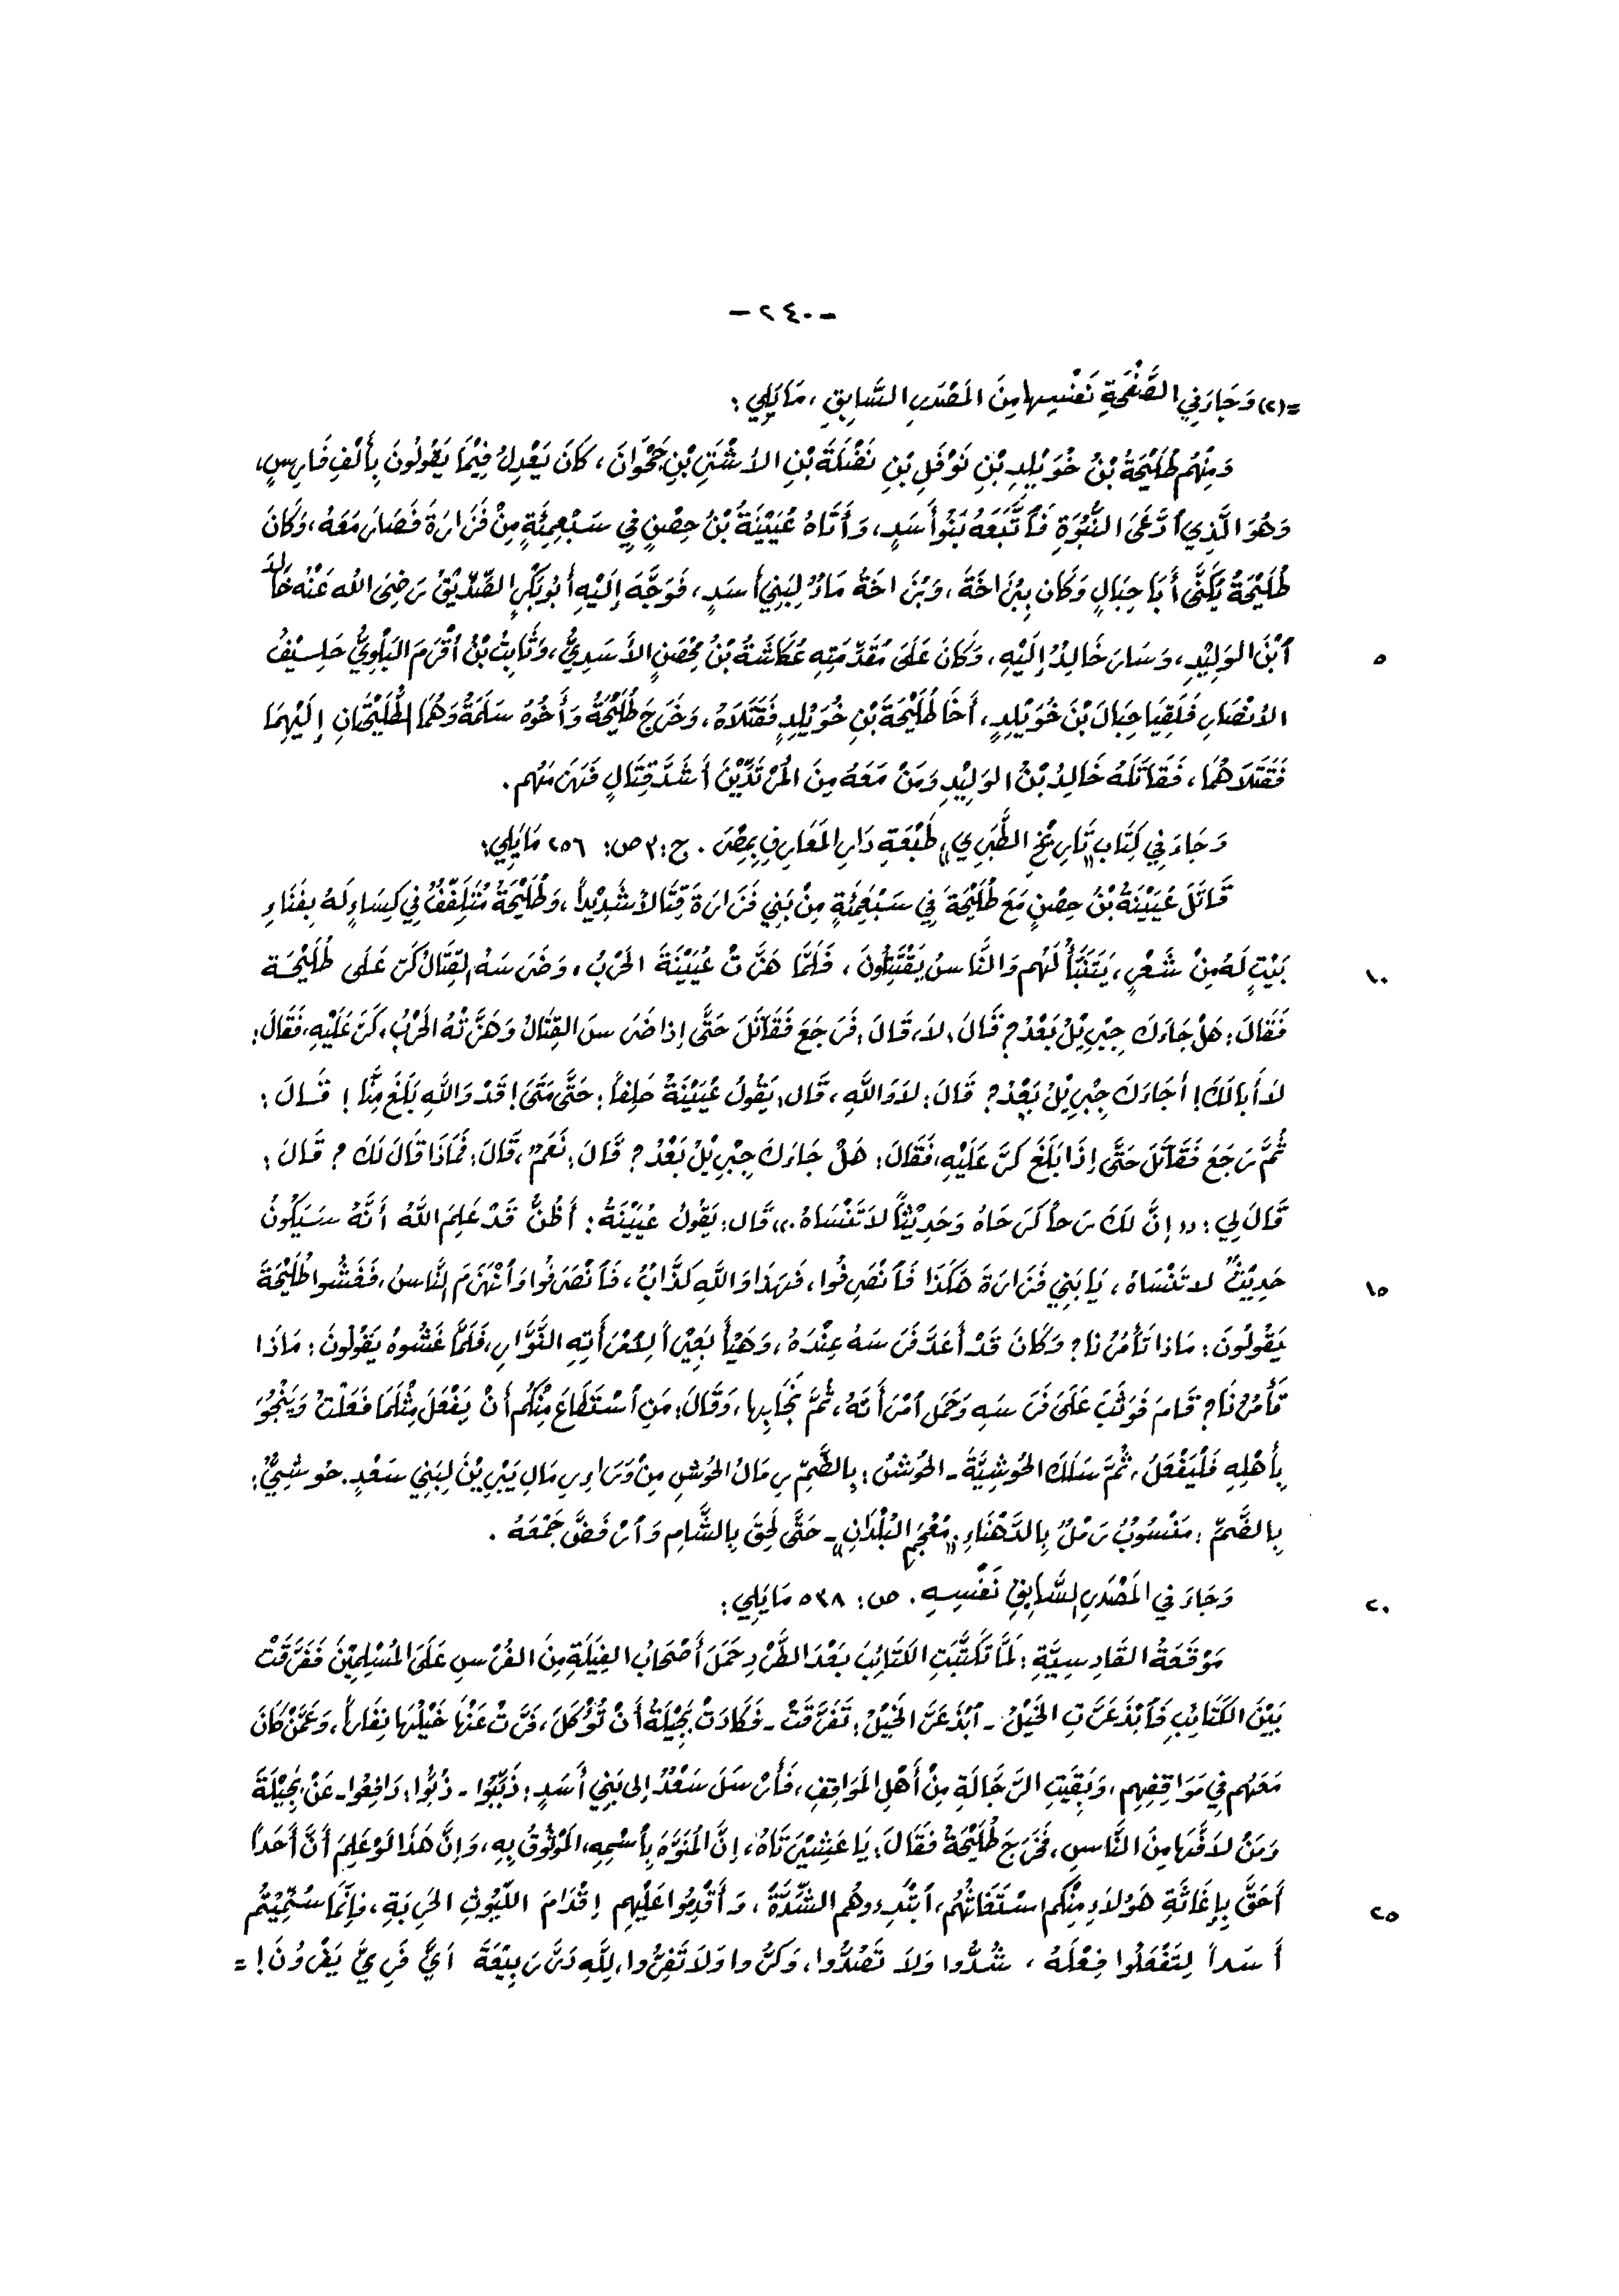 -٢٤٠-
=(٢) وَجَاءَ فِي الصَّفْحَةِ نَفْسِهَا مِنَ المَصْدَرِ السَّابِقِ، مَا يَلِي:
وَمِنْهُم طُلَيْحَةُ بْنُ خُوَيْلِدِ بْنِ نَوْفَلِ بْنِ نَضْلَةَ بْنِ الأَشْتَرِ بْنِ جَحْوَانَ، كَانَ يَعْدِلُ فِيْمَا يَقُولُونَ بِأَلْفِ فَارِسٍ،
وَهُوَ الَّذِي ٱدَّعَى النُّبُوَّةَ فَٱتَّبَعَهُ بَنُو أَسَدٍ، وَأَتَاهُ عُيَيْنَةُ بْنُ حِصْنٍ فِي سَبْعِمِئَةٍ مِنْ فَزَارَةَ فَصَارَ مَعَهُ، وَكَانَ
طُلَيْحَةُ يُكَنَّى أَبَا حِبَالٍ وَكَان بِبُزَاخَةَ، وَبُزَاخَةُ مَاءٌ لِبَنِي أَسَدٍ، فَوَجَّهَ إِلَيْهِ أَبُو بَكْرٍ الصِّدِّيْقُ رَضِيَ الله عَنْهُ خَالِدَ
٥ ٱبْنَ الوَلِيْدِ، وَسَارَ خَالِدٌ إِلَيْهِ، وَكَانَ عَلَى مُقَدِّمَتِهِ عُكَاشَةُ بْنُ مِحْصَنٍ الأَسَدِيُّ، وَثَابِتُ بْنُ أَقْرَمَ البَلَوِيُّ حَلِيْفُ
الأَنْصَارِ فَلَقِيَا حِبَالَ بْنَ خُوَيْلِدٍ، أَخَا طُلَيْحَةَ بْنِ خُوَيْلِدٍ فَقَتَلَاهُ، وَخَرَجَ طُلَيْحَةُ وَأَخُوهُ سَلَمَةُ وَهُمَا الطُّلَيْحَتَانِ إِلَيْهِمَا
فَقَتَلَاهُمَا، فَقَاتَلَهُ خَالِدُ بْنُ الوَلِيْدِ وَمَنْ مَعَهُ مِنَ المُرْتَدِّيْنَ أَشَدَّ قِتَالٍ فَهَزَمَهُم.
وَجَاءَ فِي كِتَابِ «تَارِيْخِ الطَّبَرِي» طَبْعَةِ دَارِ المَعَارِفِ بِمِصْرَ. ج: ٣ ص: ٢٥٦ مَا يَلِي:
قَاتَلَ عُيَيْنَةُ بْنُ حِصْنٍ مَعَ طُلَيْحَةَ فِي سَبْعِمِئَةٍ مِنْ بَنِي فَزَارَةَ قِتَالاً شَدِيْداً، وَطُلَيْحَةُ مُتَلَفِّفٌ فِي كِسَاءٍ لَهُ بِفَنَاءِ
١٠ بَيْتٍ لَهُ مِنْ شَعْرٍ، يَتَنَبَّأُ لَهُم وَالنَّاسُ يَقْتَتِلُونَ، فَلَمَّا هَزَّتْ عُيَيْنَةَ الحَرْبُ، وَضَرَسَهُ القِتَالُ كَرَّ عَلَى طُلَيْحَةَ
فَقَالَ: هَلْ جَاءَكَ جِبْرِيْلُ بَعْدُ؟ قَالَ: لاَ، قَالَ: فَرَجَعَ فَقَاتَلَ حَتَّى إِذَا ضَرَسَ القِتَالُ وَهَزَّتْهُ الحَرْبُ، كَرَّ عَلَيْهِ، فَقَالَ:
لاَ أَبَا لَكَ! أَجَاءَكَ جِبْرِيْلُ بَعْدُ؟ قَالَ: لاَ وَاللَّهِ، قَالَ: يَقُولُ عُيَيْنَةُ حَلِفاً: حَتَّى مَتَى! قَدْ وَاللَّهِ بَلَغَ مِنَّا! قَالَ:
ثُمَّ رَجَعَ فَقَاتَلَ حَتَّى إِذَا بَلَغَ كَرَّ عَلَيْهِ، فَقَالَ: هَلْ جَاءَكَ جِبْرِيْلُ بَعْدُ؟ قَالَ: نَعَمْ، قَالَ: فَمَاذَا قَالَ لَكَ؟ قَالَ:
قَالَ لِي: «إِنَّ لَكَ رَحاً كَرَحَاهُ وَحَدِيْثاً لاَ تَنْسَاهُ.» قَالَ: يَقُولُ عُيَيْنَةُ: أَظُنُّ قَدْ عَلِمَ اللَّهُ أَنَّهُ سَيَكُونُ
١٥ حَدِيْثٌ لاَ تَنْسَاهُ، يَا بَنِي فَزَارَةَ هَكَذَا فَٱنْصَرِفُوا، فَهَذَا وَاللَّهِ كَذَّابٌ، فَٱنْصَرَفُوا وَٱنْهَزَمَ النَّاسُ، فَغَشُوا طُلَيْحَةَ
يَقُولُونَ: مَاذَا تَأْمُرُنَا؟ وَكَانَ قَدْ أَعَدَّ فَرَسَهُ عِنْدَهُ، وَهَيَّأَ بَعِيْراً لاِمْرَأَتِهِ النَّوَّارِ، فَلَمَّا غَشُوهُ يَقُولُونَ: مَاذَا
تَأْمُرُنَا؟ قَامَ فَوَثَبَ عَلَى فَرَسِهِ وَحَمَلَ ٱمْرَأَتَهُ، ثُمَّ نَجَا بِهَا، وَقَالَ: مَنِ ٱسْتَطَاعَ مِنْكُم أَنْ يَفْعَلَ مِثْلَمَا فَعَلْتُ وَيَنْجُوَ
بِأَهْلِهِ فَلْيَفْعَلْ، ثُمَّ سَلَكَ الحُوْشِيَّةَ - الحُوْشُ: بِالضَّمِّ رِمَالُ الحُوْشِ مِنْ وَرَاءِ رِمَالِ يَبْرِيْنَ لِبَنِي سَعْدٍ. حُوشِيٌّ:
بِالضَّمِّ: مَنْسُوبٌ رَمْلٌ بِالدَّهْنَاءِ. «مُعْجَمِ البُلْدَانِ» - حَتَّى لَحِقَ بِالشَّامِ وَٱرْفَضَّ جَمْعَهُ.
٢٠ وَجَاءَ فِي المَصْدَرِ السَّابِقِ نَفْسِهِ. ص: ٥٣٨ مَا يَلِي:
مَوْقَعَةُ القَادِسِيَّةِ: لَمَّا تَكَتَّبَتِ الكَتَائِبُ بَعْدَ الطَّرْدِ حَمَلَ أَصْحَابُ الفِيَلَةِ مِنَ الفُرْسِ عَلَى المُسْلِمِيْنَ فَفَرَّقَتْ
بَيْنَ الكَتَائِبِ فَٱبْذَعَرَّتِ الخَيْلُ - ٱبْذَعَرَّ الخَيْلُ: تَفَرَّقَتْ - فَكَادَتْ بَجِيْلَةُ أَنْ تُؤْكَلَ، فَرَّتْ عَنْهَا خَيْلُهَا نِفَاراً، وَعَمَّنْ كَانَ
مَعَهُم فِي مَوَاقِفِهِم، وَبَقِيَتِ الرَّجَالَةِ مِنْ أَهْلِ المَوَاقِفِ، فَأَرْسَلَ سَعْدٌ إِلى بَنِي أَسَدٍ: ذَبِّبُوا - ذُبُّوا: دَافِعُوا - عَنْ بَجِيْلَةَ
وَمَنْ لاَفَّهَا مِنَ النَّاسِ، فَخَرَجَ طُلَيْحَةُ فَقَالَ: يَا عَشِيْرَتَاهُ، إِنَّ المُنَوَّهَ بِٱسْمِهِ، المَوْثُوقُ بِهِ، وَإِنَّ هَذَا لَوْ عَلِمَ أَنَّ أَحَداً
٢٥ أَحَقَّ بِإِغَاثَةِ هَؤُلاَءِ مِنْكُم اسْتَغَاثَهُمُ، ٱبْتَدِءُوهُم الشَّدَّةَ، وَأَقْدِمُوا عَلَيْهِم إِقْدَامَ اللُّيُوثِ الحَرِبَةِ، فَإِنَّمَا سُمِّيْتُم
أَسَداً لِتَفْعَلُوا فِعْلَهُ، شُدُّوا وَلاَ تَصُدُّوا، وَكُرُّوا وَلاَ تَفِرُّوا، لِلَّهِ دَرُّ رَبِيْعَةَ أَيَّ فَرِيٍّ يَفْرُونَ! =